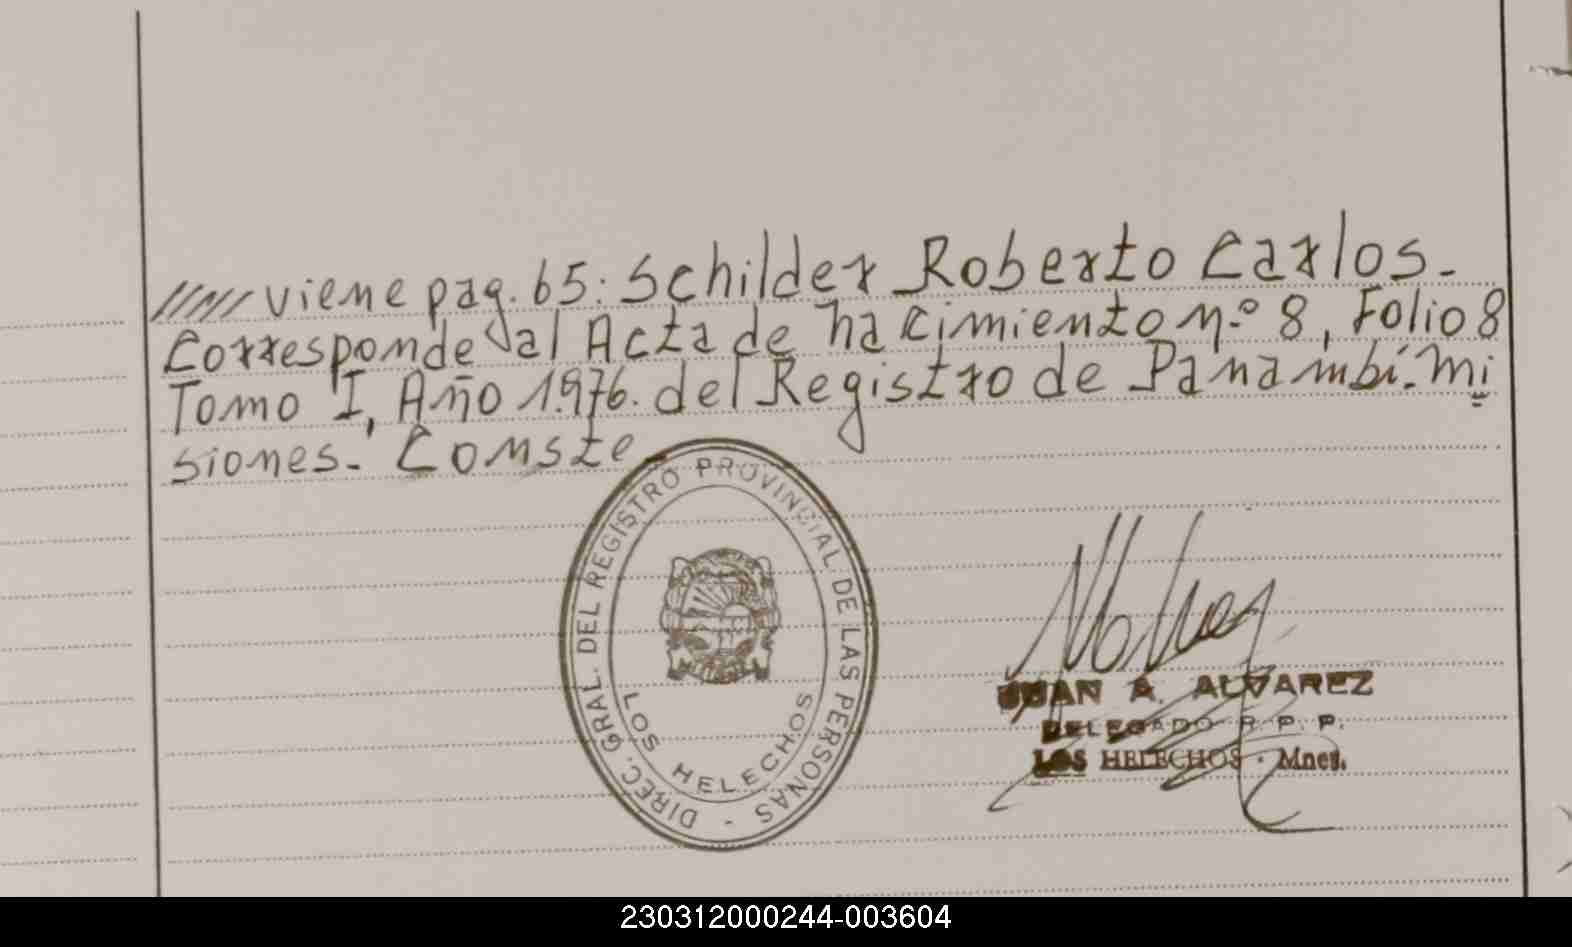 ///// viene pag. 65: Schilder Roberto Carlos.-
Corresponde al Acta de nacimiento n.º 8, Folio 8
Tomo I, Año 1.976. del Registro de Panambí. Mi
siones.- Conste
DIREC. GRAL. DEL REGISTRO PROVINCIAL DE LAS PERSONAS -
LOS HELECHOS
JUAN A. ALVAREZ
DELEGADO R. P. P.
LOS HELECHOS - Mnes.
230312000244-003604